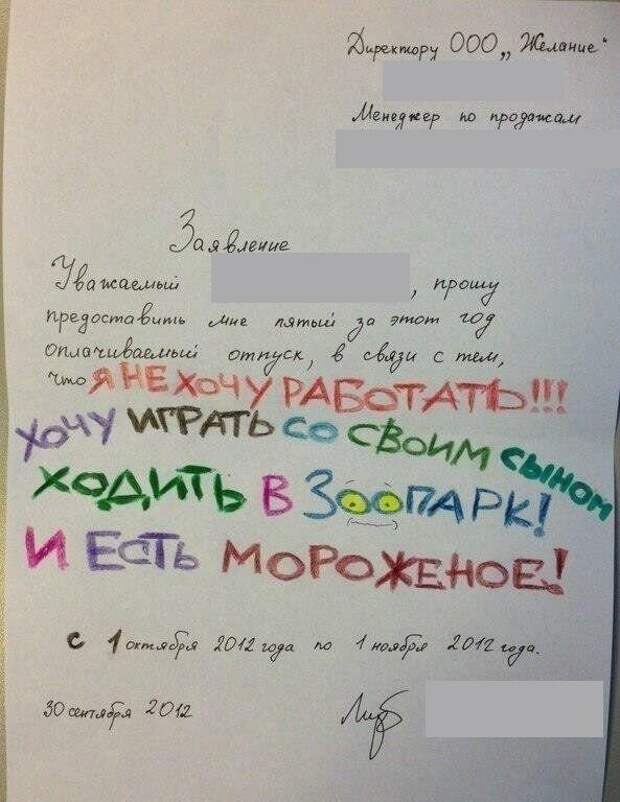 Директору ООО „Желание"
Менеджер по продажам
Заявление
Уважаемый , прошу
предоставить мне пятый за этот год
оплачиваемый отпуск, в связи с тем,
что Я НЕ ХОЧУ РАБОТАТЬ!!!
ХОЧУ ИГРАТЬ СО СВОИМ СЫНОМ
ХОДИТЬ В ЗООПАРК!
И ЕСТЬ МОРОЖЕНОЕ!
с 1 октября 2012 года по 1 ноября 2012 года.
30 сентября 2012